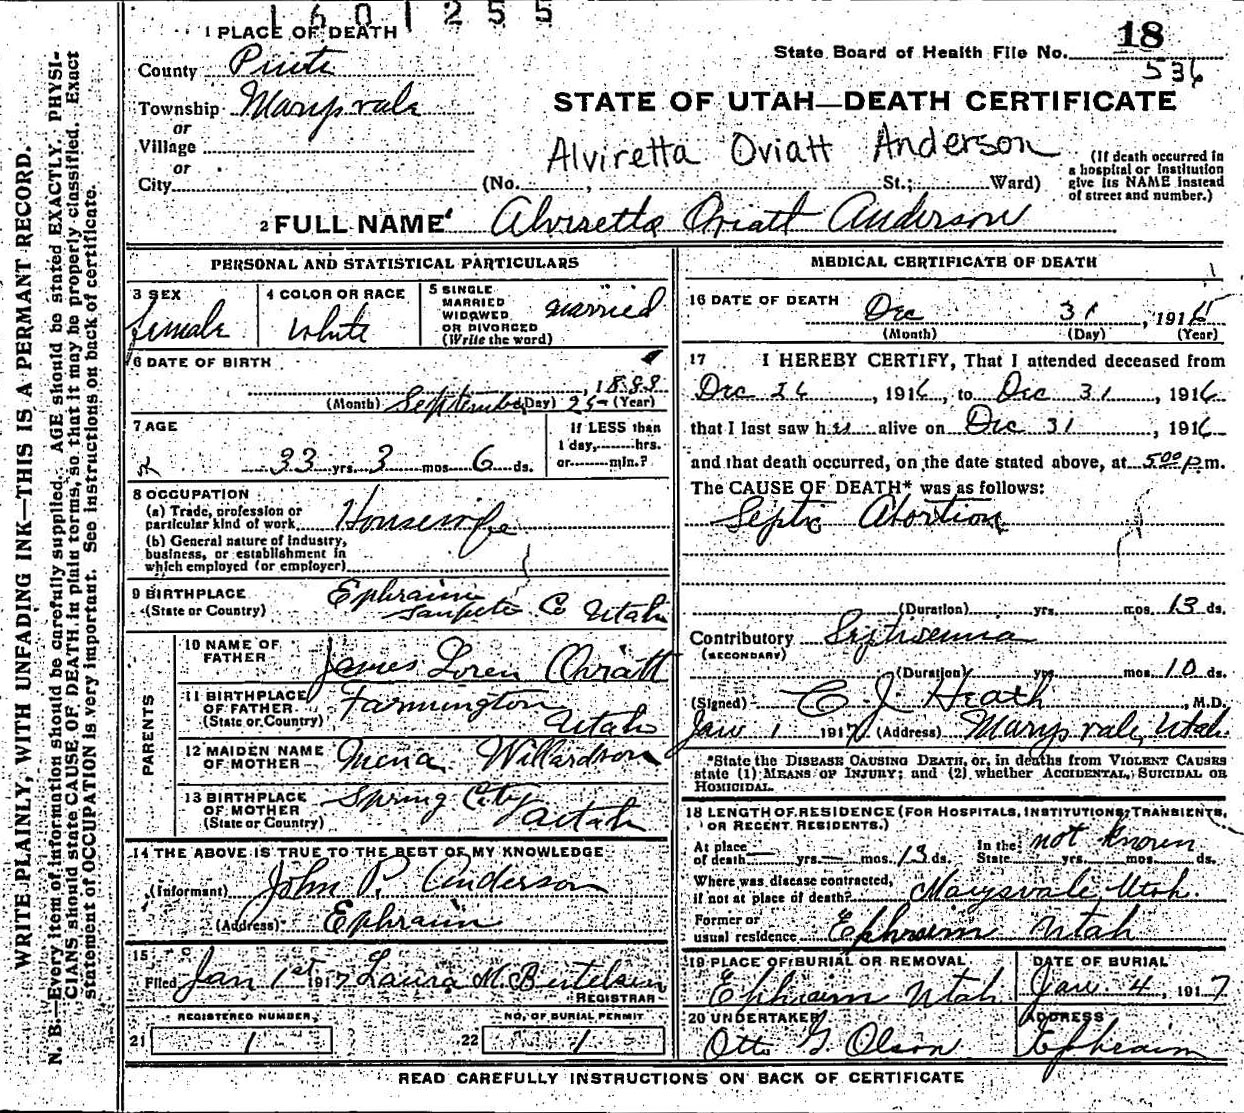 1601255
1 PLACE OF DEATH
State Board of Health File No. 18
536
County Piute
Township Marysvale
or
Village
or
City
STATE OF UTAH—DEATH CERTIFICATE
Alviretta Oviatt Anderson
(No. , St.; Ward)
(If death occurred in
a hospital or institution
give its NAME instead
of street and number.)
2 FULL NAME Alviretta Oviatt Anderson
PERSONAL AND STATISTICAL PARTICULARS
3 SEX
female
4 COLOR OR RACE
White
5 SINGLE
MARRIED
WIDOWED
OR DIVORCED
(Write the word)
married
6 DATE OF BIRTH
, 1888
(Month) September (Day) 25- (Year)
7 AGE
33 yrs. 3 mos 6 ds.
If LESS than
1 day, hrs.
or min.?
8 OCCUPATION
(a) Trade, profession or
particular kind of work Housewife
(b) General nature of industry,
business, or establishment in
which employed (or employer)
9 BIRTHPLACE
(State or Country)
Ephraim
Sanpete Co Utah
PARENTS
10 NAME OF
FATHER
James Loren Oviatt
11 BIRTHPLACE
OF FATHER
(State or Country)
Farmington
Utah
12 MAIDEN NAME
OF MOTHER
Mena Willardson
13 BIRTHPLACE
OF MOTHER
(State or Country)
Spring City
Utah
14 THE ABOVE IS TRUE TO THE BEST OF MY KNOWLEDGE
(Informant) John P. Anderson
(Address) Ephraim
15
Filed Jan 1st 1917 Laura M. Bertelsen
REGISTRAR
REGISTERED NUMBER
21 1
NO. OF BURIAL PERMIT
22 1
MEDICAL CERTIFICATE OF DEATH
16 DATE OF DEATH
Dec 31, 1916
(Month) (Day) (Year)
17 I HEREBY CERTIFY, That I attended deceased from
Dec 26, 1916, to Dec 31, 1916
that I last saw her alive on Dec 31, 1916
and that death occurred, on the date stated above, at 5:00 p.m.
The CAUSE OF DEATH* was as follows:
Septic Abortion
(Duration) yrs. mos. 13 ds.
Contributory Septicemia
(SECONDARY)
(Duration) yrs. mos. 10 ds.
(Signed) C J Heath, M.D.
Jan 1 1917 (Address) Marysvale, Utah.
*State the DISEASE CAUSING DEATH, or, in deaths from VIOLENT CAUSES
state (1) MEANS OF INJURY; and (2) whether ACCIDENTAL, SUICIDAL OR
HOMICIDAL.
18 LENGTH OF RESIDENCE (FOR HOSPITALS, INSTITUTIONS, TRANSIENTS,
OR RECENT RESIDENTS.)
At place
of death — yrs. — mos. 13 ds.
In the
State yrs. mos. ds.
not known
Where was disease contracted,
if not at place of death? Marysvale Utah.
Former or
usual residence Ephraim Utah
19 PLACE OF BURIAL OR REMOVAL
Ephraim Utah
DATE OF BURIAL
Jan. 4, 1917
20 UNDERTAKER
Otto G Olson
ADDRESS
Ephraim
READ CAREFULLY INSTRUCTIONS ON BACK OF CERTIFICATE
WRITE PLAINLY, WITH UNFADING INK—THIS IS A PERMANT RECORD.
N. B.—Every item of information should be carefully supplied. AGE should be stated EXACTLY. PHYSI-
CIANS should state CAUSE OF DEATH in plain terms, so that it may be properly classified. Exact
statement of OCCUPATION is very important. See instructions on back of certificate.